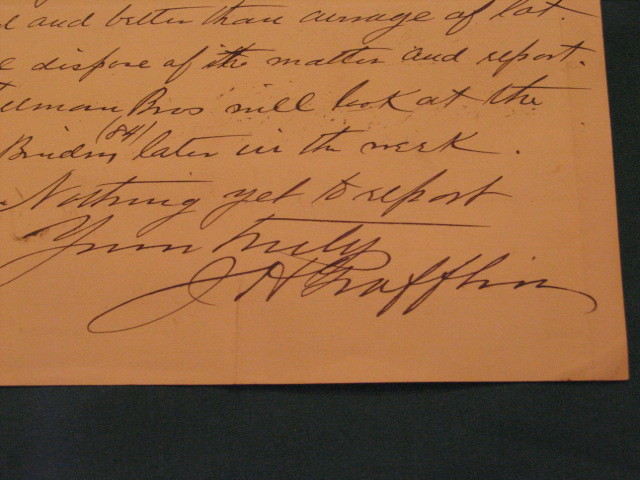 and better than average of lot.
dispose of the matter and report.
Bros will look at the
(84)
later in the week.
Nothing yet to report
Yours truly
J H Grafflin